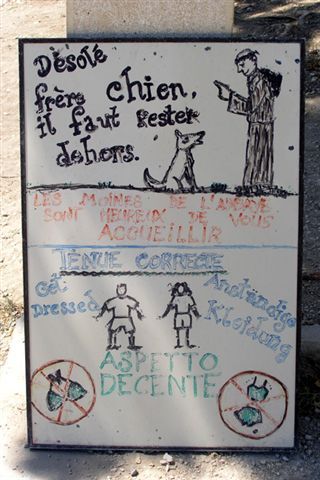 Désolé
frère chien,
il faut rester
dehors.
LES MOINES DE L'ABBAYE
SONT HEUREUX DE VOUS
ACCUEILLIR
TENUE CORRECTE
Get
Dressed
Anständige
Kleidung
ASPETTO
DECENTE